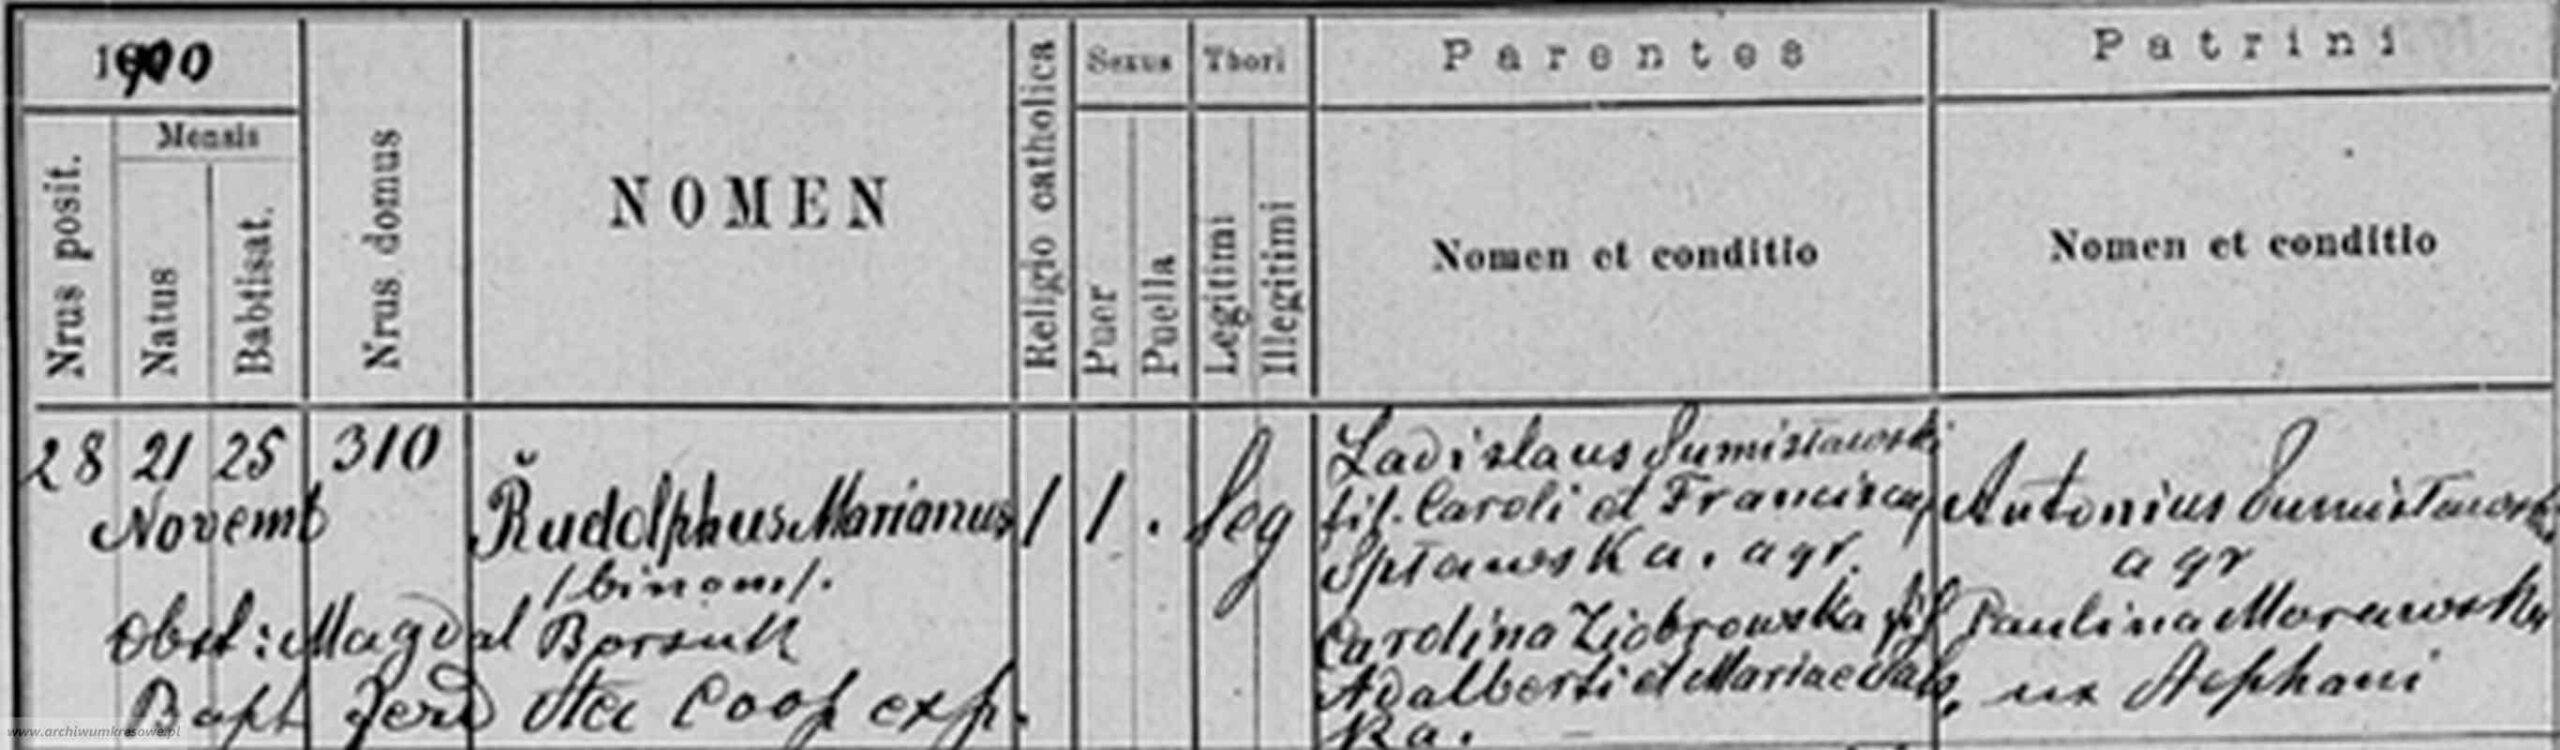 1900
Nrus posit.
Mensis
Natus
Babtisat.
Nrus domus
NOMEN
Religio catholica
Sexus
Puer
Puella
Thori
Legitimi
Illegitimi
Parentes
Nomen et conditio
Patrini
Nomen et conditio
28 21 25 310
Novemb
Rudolphus Marianus 1 1 . leg
/binom/.
Obst: Magdal Borsuk
Bapt Ferd Coop exp.
Ladislaus Sumisławski
fil. Caroli et Francisca
Spławska. agr.
Carolina Ziobrowska fil
Adalberti et Mariae
ka.
Antonius Sumisławski
agr
Paulina Morawska
ux Stephani
www.archiwumkresowe.pl